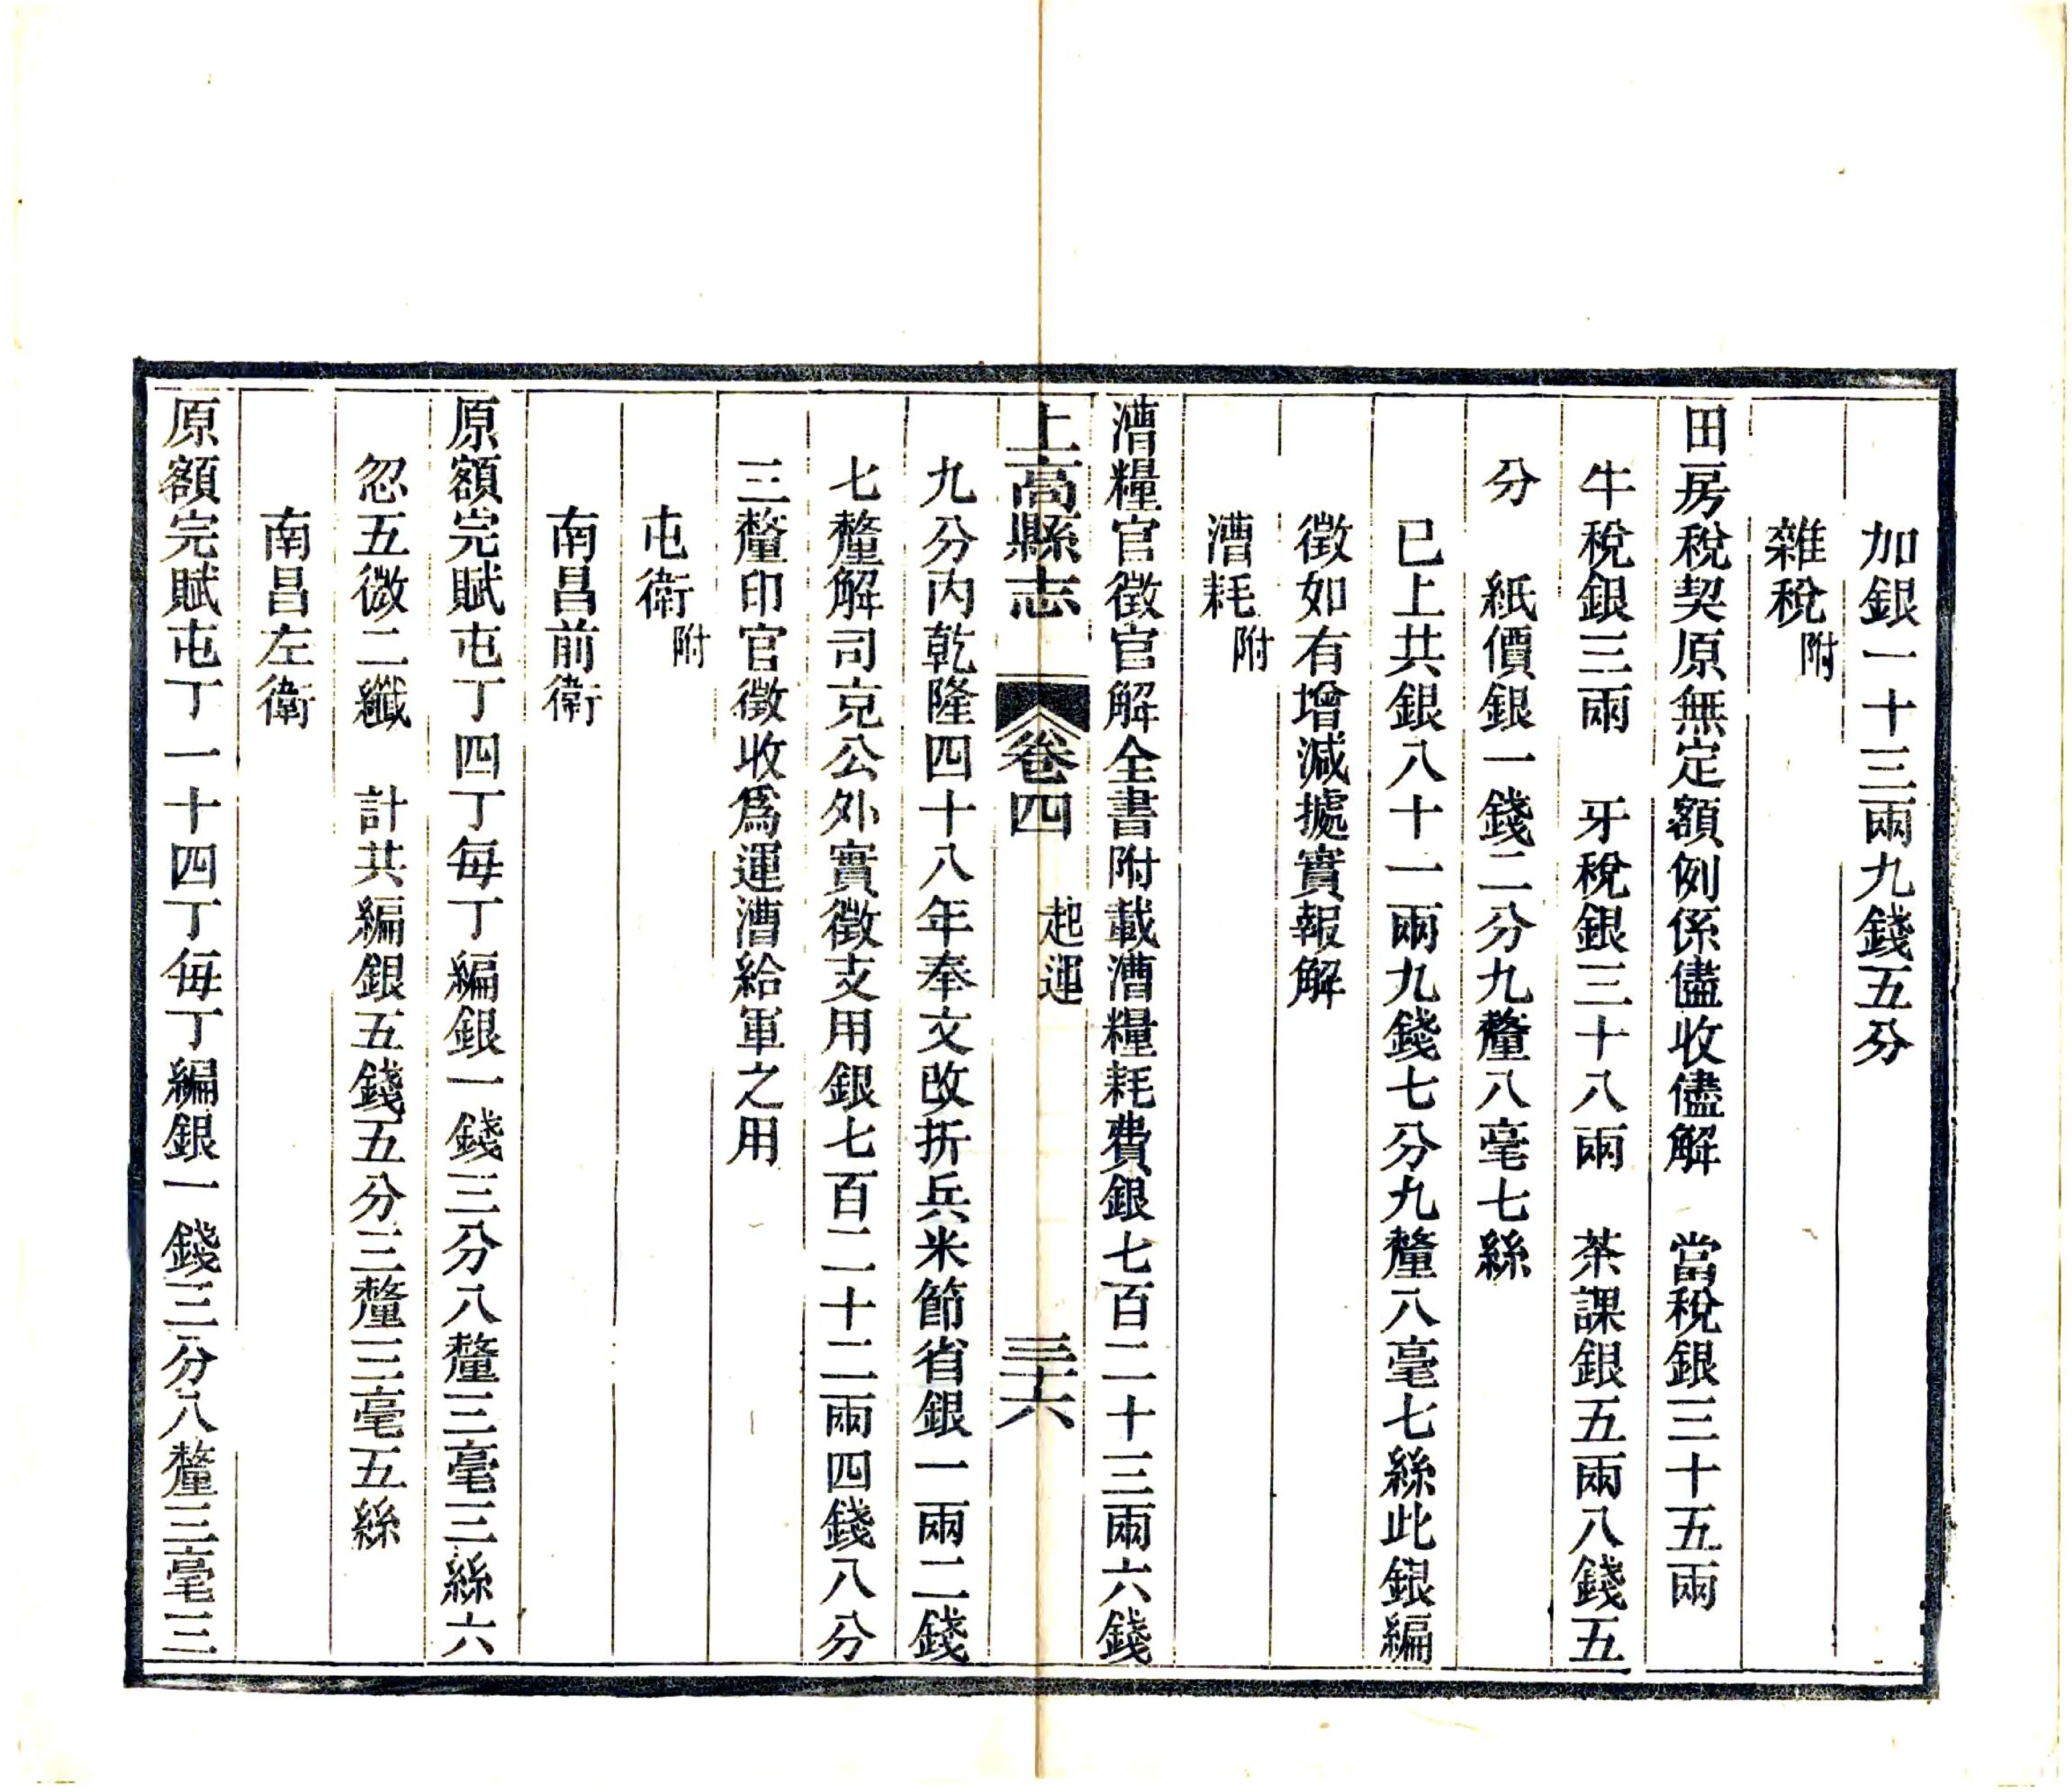 加銀一十三兩九錢五分
雜稅附
田房稅契原無定額例係儘收儘解　當稅銀三十五兩
牛稅銀三兩　牙稅銀三十八兩　茶課銀五兩八錢五
分　紙價銀一錢二分九釐八毫七絲
已上共銀八十一兩九錢七分九釐八毫七絲此銀編
徵如有增減據實報解
漕耗附
漕糧官徵官解全書附載漕糧耗費銀七百二十三兩六錢
上高縣志　卷四　起運　三十六
九分内乾隆四十八年奉文改折兵米節省銀一兩二錢
七釐解司克公外實徵支用銀七百二十二兩四錢八分
三釐印官徵收爲運漕給軍之用
屯衛附
南昌前衛
原額完賦屯丁四丁每丁編銀一錢三分八釐三毫三絲六
忽五微二纖　計共編銀五錢五分三釐三毫五絲
南昌左衛
原額完賦屯丁一十四丁每丁編銀一錢三分八釐三毫三